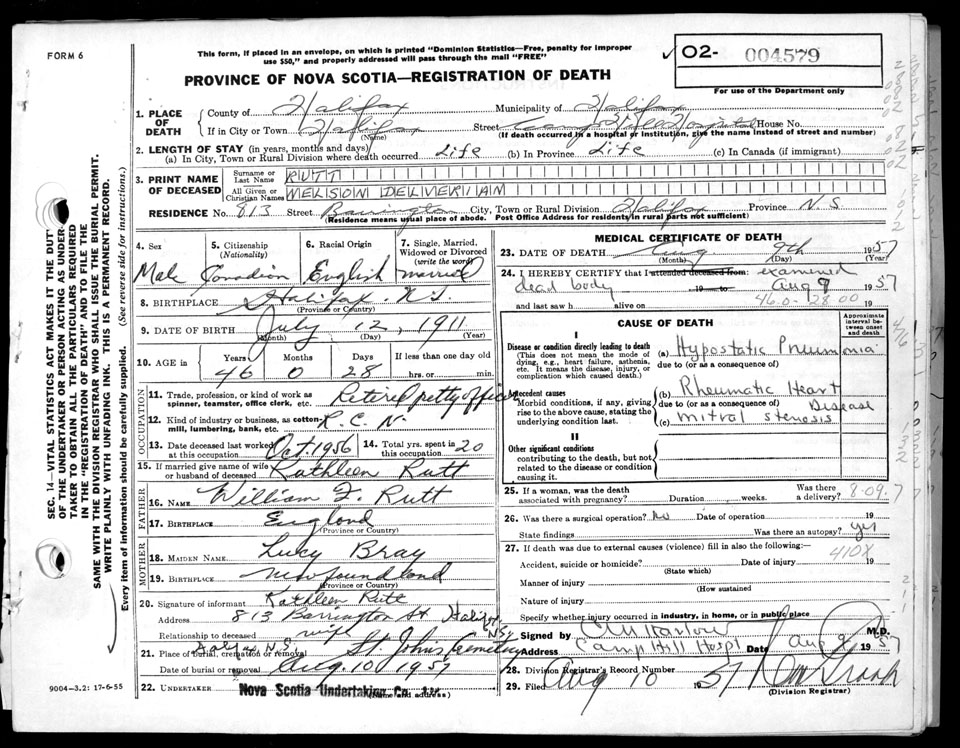 FORM 6
This form, if placed in an envelope, on which is printed "Dominion Statistics—Free, penalty for improper
use $50," and properly addressed will pass through the mail "FREE"
PROVINCE OF NOVA SCOTIA—REGISTRATION OF DEATH
O2- 004579
For use of the Department only
1. PLACE OF DEATH
County of Halifax Municipality of Halifax
If in City or Town Halifax Street Camp Hill Hospital House No.
(Name) (If death occurred in a hospital or institution, give the name instead of street and number)
2. LENGTH OF STAY (in years, months and days)
(a) In City, Town or Rural Division where death occurred Life (b) In Province Life (c) In Canada (if immigrant)
3. PRINT NAME OF DECEASED
Surname or Last Name RUTT
All Given or Christian Names NELSON DELVERIAN
RESIDENCE No. 813 Street Barrington City, Town or Rural Division Halifax Province N.S.
(Residence means usual place of abode. Post Office Address for residents in rural parts not sufficient)
4. Sex
Male
5. Citizenship (Nationality)
Canadian
6. Racial Origin
English
7. Single, Married, Widowed or Divorced (write the word)
married
8. BIRTHPLACE Halifax N.S.
(Province or Country)
9. DATE OF BIRTH July 12, 1911
(Month) (Day) (Year)
10. AGE in Years Months Days If less than one day old
46 0 28 hrs. or min.
OCCUPATION
11. Trade, profession, or kind of work as spinner, teamster, office clerk, etc. Retired petty officer
12. Kind of industry or business, as cotton-mill, lumbering, bank, etc. R.C.N.
13. Date deceased last worked at this occupation Oct. 1956
14. Total yrs. spent in this occupation 20
15. If married give name of wife or husband of deceased Kathleen Rutt
FATHER
16. NAME William J. Rutt
17. BIRTHPLACE England
(Province or Country)
MOTHER
18. MAIDEN NAME Lucy Bray
19. BIRTHPLACE Newfoundland
(Province or Country)
20. Signature of informant Kathleen Rutt
Address 813 Barrington St Halifax N.S.
Relationship to deceased wife
21. Place of burial, cremation or removal Halifax N.S. St. Johns Cemetery
Date of burial or removal Aug. 10 1957
22. UNDERTAKER Nova Scotia Undertaking Co. Ltd.
(Name and address)
MEDICAL CERTIFICATE OF DEATH
23. DATE OF DEATH Aug. 9th 1957
(Month) (Day) (Year)
24. I HEREBY CERTIFY that I attended deceased from: examined
dead body 19 to Aug 9 1957
and last saw h alive on 46.0-28.00 19
CAUSE OF DEATH
Approximate interval between onset and death
I
Disease or condition directly leading to death
(This does not mean the mode of dying, e.g., heart failure, asthenia, etc. It means the disease, injury, or complication which caused death.)
(a) Hypostatic Pneumonia
due to (or as a consequence of)
Antecedent causes
Morbid conditions, if any, giving rise to the above cause, stating the underlying condition last.
(b) Rheumatic Heart Disease
due to (or as a consequence of)
(c) mitral stenosis
II
Other significant conditions
contributing to the death, but not related to the disease or condition causing it.
25. If a woman, was the death associated with pregnancy? Duration weeks. Was there a delivery? 8-09.7
26. Was there a surgical operation? No Date of operation 19
State findings Was there an autopsy? yes
27. If death was due to external causes (violence) fill in also the following:—
410X
Accident, suicide or homicide? Date of injury 19
(State which)
Manner of injury
(How sustained)
Nature of injury
Specify whether injury occurred in industry, in home, or in public place
Signed by M.D.
Address Camp Hill Hospl Date Aug 9 1957
28. Division Registrar's Record Number
29. Filed Aug 10 57
(Division Registrar)
SEC. 14—VITAL STATISTICS ACT MAKES IT THE DUTY
OF THE UNDERTAKER OR PERSON ACTING AS UNDER-
TAKER TO OBTAIN ALL THE PARTICULARS REQUIRED
IN THE "REGISTRATION OF DEATH" AND TO FILE THE
SAME WITH THE DIVISION REGISTRAR WHO SHALL ISSUE THE BURIAL PERMIT.
WRITE PLAINLY WITH UNFADING INK. THIS IS A PERMANENT RECORD.
Every item of information should be carefully supplied. (See reverse side for instructions.)
9004-3.2: 17-6-55